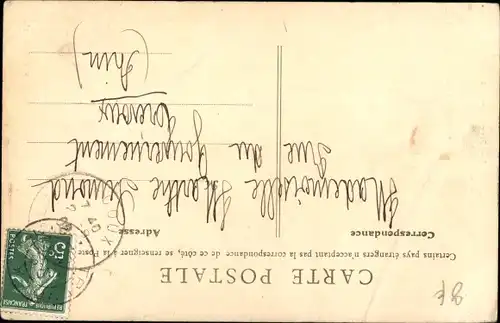 CARTE POSTALE
Certains pays étrangers n'acceptant pas la correspondance de ce côté, se renseigner à la Poste
Correspondance
Adresse
Mademoiselle Marthe
Rue du Gouvernement
Trévoux
(Ain)
5c
POSTES
REPUBLIQUE FRANÇAISE